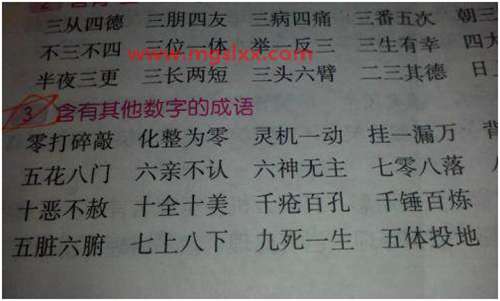 三从四德 三朋四友 三病四痛 三番五次 朝三
www.mgslxx.com
不三不四 三位一体 举一反三 三生有幸 四大
半夜三更 三长两短 三头六臂 二三其德 日
3 含有其他数字的成语
零打碎敲 化整为零 灵机一动 挂一漏万 背
五花八门 六亲不认 六神无主 七零八落
十恶不赦 十全十美 千疮百孔 千锤百炼
五脏六腑 七上八下 九死一生 五体投地